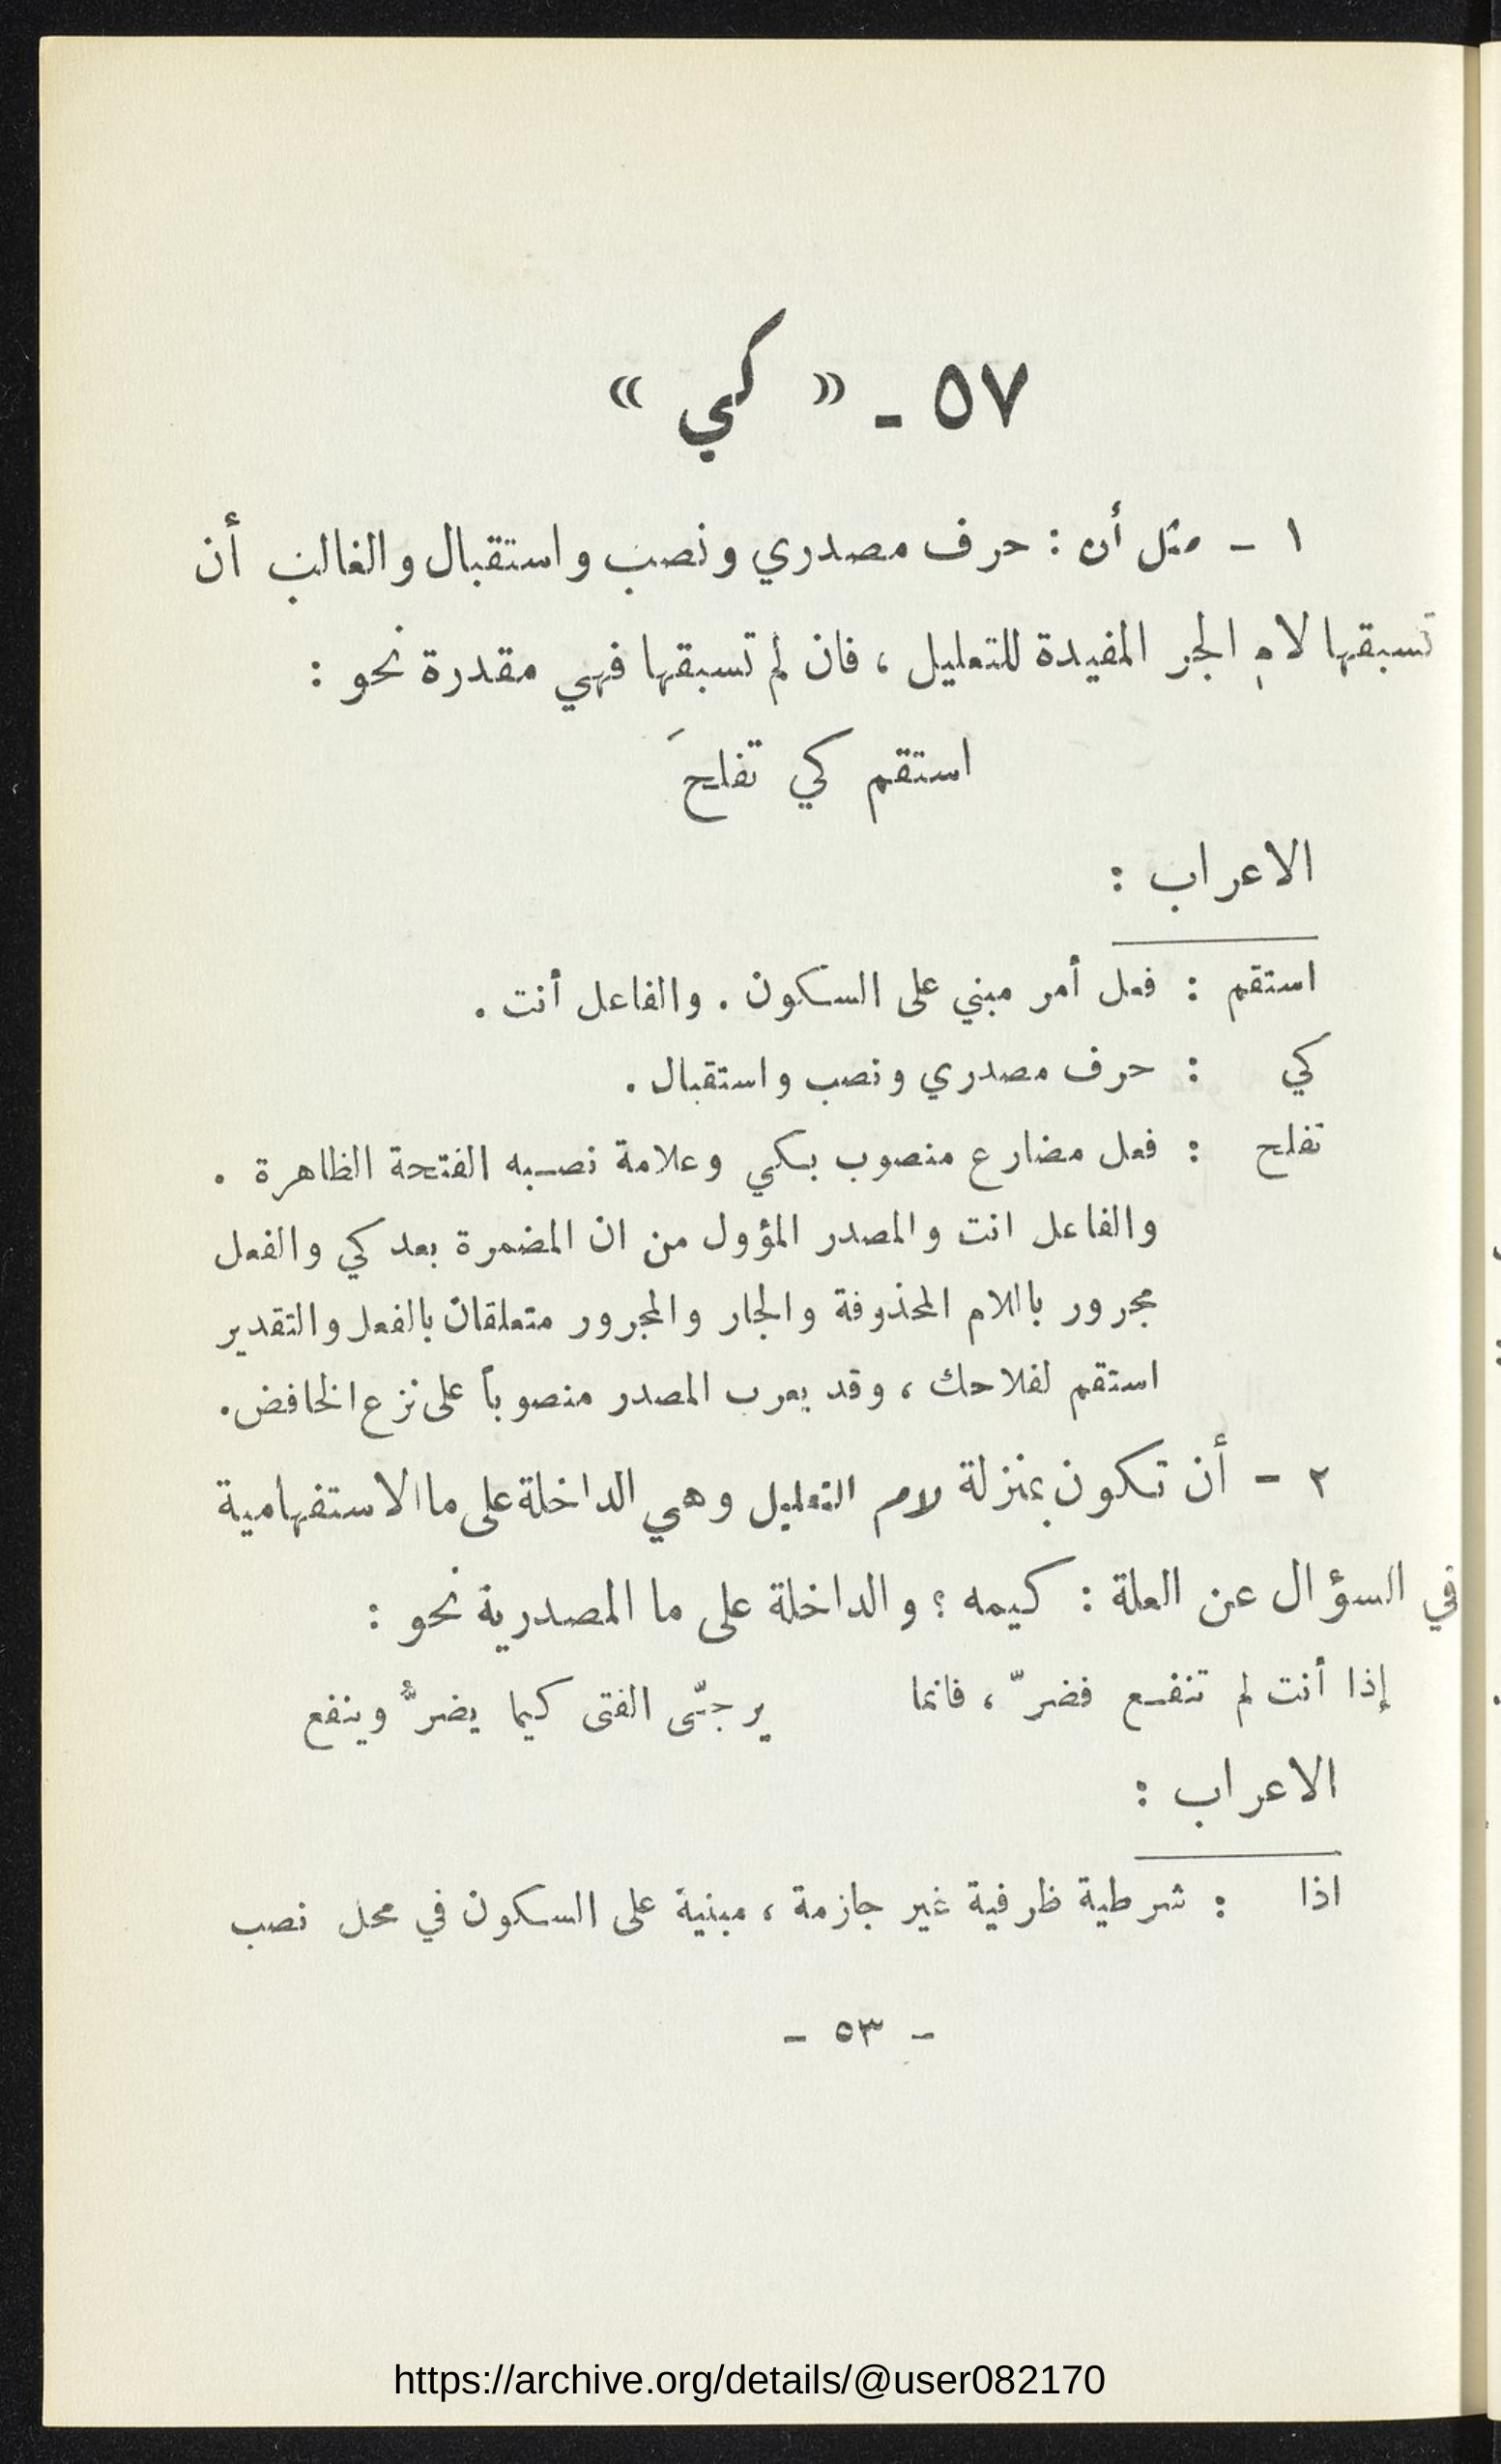 ٥٧ ـ « كي »
١ ـ مثل أن : حرف مصدري ونصب واستقبال والغالب أن
تسبقها لامِ الجر المفيدة للتعليل ، فان لم تسبقها فهي مقدرة نحو :
استقم كي تفلحَ
الاعراب :
استقم : فعل أمر مبني على السكون . والفاعل أنت .
كي : حرف مصدري ونصب واستقبال .
تفلح : فعل مضارع منصوب بكي وعلامة نصبه الفتحة الظاهرة .
والفاعل انت والمصدر المؤول من ان المضمرة بعد كي والفعل
مجرور باللام المحذوفة والجار والمجرور متعلقان بالفعل والتقدير
استقم لفلاحك ، وقد يعرب المصدر منصوباً على نزع الخافض .
٢ ـ أن تكون بمنزلة لام التعليل وهي الداخلة على ما الاستفهامية
في السؤال عن العلة : كيمه ؟ والداخلة على ما المصدرية نحو :
إذا أنت لم تنفع فضرّ ، فانما يرجّى الفتى كيما يضرُّ وينفع
الاعراب :
اذا : شرطية ظرفية غير جازمة ، مبنية على السكون في محل نصب
ـ ٥٣ ـ
https://archive.org/details/@user082170